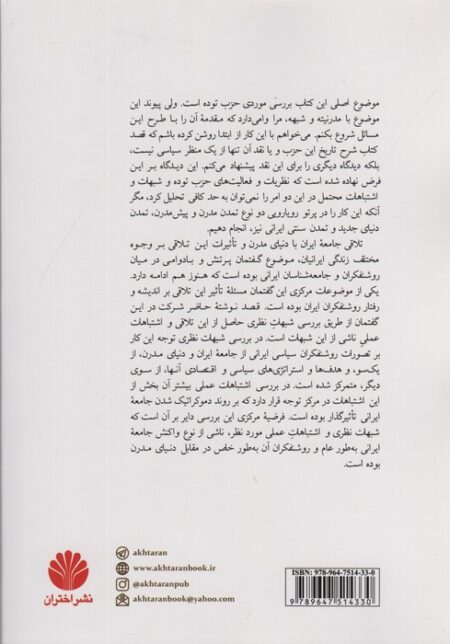 موضوع اصلی این کتاب بررسی موردی حزب توده است. ولی پیوند این
موضوع با مدرنیته و شبهه، مرا وامی‌دارد که مقدمهٔ آن را با طرح این
مسائل شروع بکنم. می‌خواهم با این کار از ابتدا روشن کرده باشم که قصد
کتاب شرح تاریخ این حزب و یا نقد آن تنها از یک منظر سیاسی نیست،
بلکه دیدگاه دیگری را برای این نقد پیشنهاد می‌کنم. این دیدگاه بر این
فرض نهاده شده است که نظریات و فعالیت‌های حزب توده و شبهات و
اشتباهات محتمل در این دو امر را نمی‌توان به حد کافی تحلیل کرد، مگر
آنکه این کار را در پرتو رویارویی دو نوع تمدن مدرن و پیش‌مدرن، تمدن
دنیای جدید و تمدن سنتی ایرانی نیز، انجام دهیم.
تلاقی جامعهٔ ایران با دنیای مدرن و تأثیرات این تلاقی بر وجوه
مختلف زندگی ایرانیان، موضوع گفتمان پرتنش و بادوامی در میان
روشنفکران و جامعه‌شناسان ایرانی بوده است که هنوز هم ادامه دارد.
یکی از موضوعات مرکزی این گفتمان مسئلهٔ تأثیر این تلاقی بر اندیشه و
رفتار روشنفکران ایران بوده است. قصد نوشتهٔ حاضر شرکت در این
گفتمان از طریق بررسی شبهات نظری حاصل از این تلاقی و اشتباهات
عملی ناشی از این شبهات است. در بررسی شبهات نظری توجه این کار
بر تصورات روشنفکران سیاسی ایرانی از جامعهٔ ایران و دنیای مدرن، از
یک‌سو، و هدف‌ها و استراتژی‌های سیاسی و اقتصادی آنها، از سوی
دیگر، متمرکز شده است. در بررسی اشتباهات عملی بیشتر آن بخش از
این اشتباهات در مرکز توجه قرار دارد که بر روند دموکراتیک شدن جامعهٔ
ایرانی تأثیرگذار بوده است. فرضیهٔ مرکزی این بررسی دایر بر آن است که
شبهات نظری و اشتباهات عملی مورد نظر، ناشی از نوع واکنش جامعهٔ
ایرانی به‌طور عام و روشنفکران آن به‌طور خاص در مقابل دنیای مدرن
بوده است.
نشر اختران
akhtaran
www.akhtaranbook.ir
@akhtaranpub
akhtaranbook@yahoo.com
ISBN: 978-964-7514-33-0
9 789647 514330